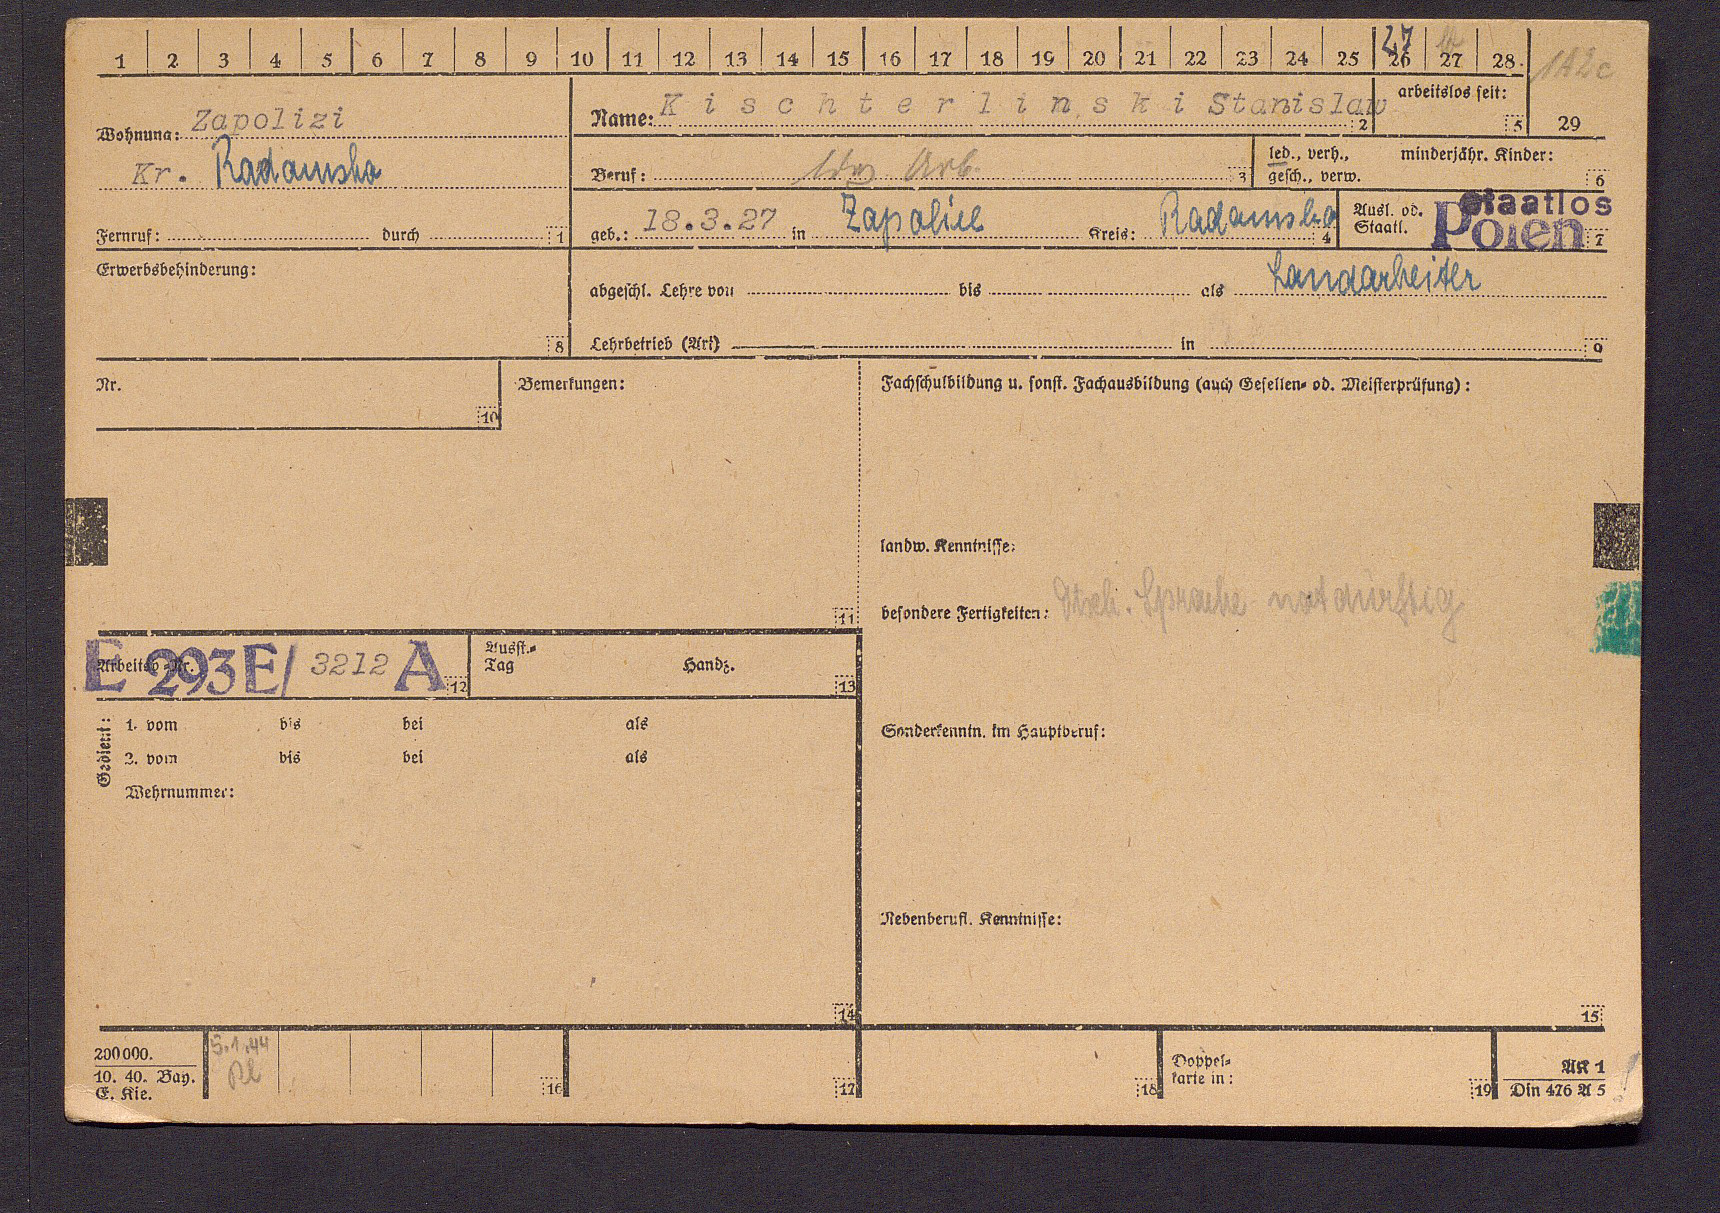 1 2 3 4 5 6 7 8 9 10 11 12 13 14 15 16 17 18 19 20 21 22 23 24 25 26 27 28
27
29
142c
Wohnung: Zapolizi
Kr. Radomsko
Fernruf: durch 1
Name: Kischterlinski Stanislaw 2
arbeitslos seit: 5
Beruf: Arb. 3
led., verh., gesch., verw.
minderjähr. Kinder: 6
geb.: 18.3.27 in Zapolice Kreis: Radomsko 4
Ausl. od. Staatl. staatlos Polen 7
Erwerbsbehinderung: 8
abgeschl. Lehre von bis als Landarbeiter
Lehrbetrieb (Art) in 9
Nr. 10
Bemerkungen: 11
Fachschulbildung u. sonst. Fachausbildung (auch Gesellen- od. Meisterprüfung):
landw. Kenntnisse:
besondere Fertigkeiten: dtsch. Sprache notdürftig
Arbeitsb.-Nr. E 293E/ 3212 A 12
Ausst.-Tag Handz. 13
Gedient:
1. vom bis bei als
2. vom bis bei als
Wehrnummer:
14
Sonderkenntn. im Hauptberuf:
Nebenberufl. Kenntnisse:
15
200000.
10. 40. Bay.
E. Kie.
5.1.44
16
17
18
Doppel-
karte in: 19
AK 1
Din 476 A 5